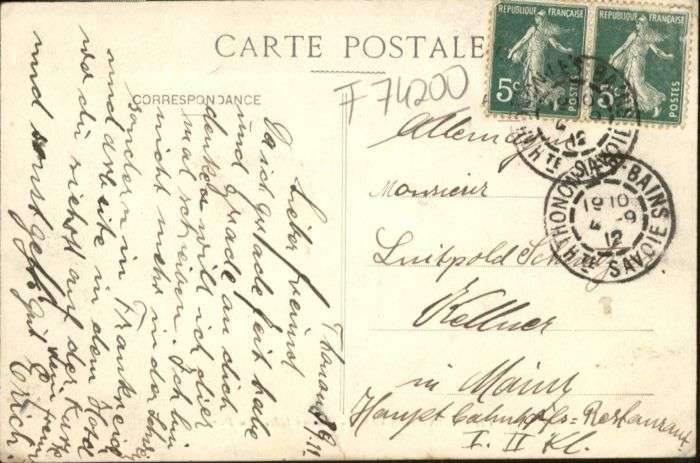 CARTE POSTALE
CORRESPONDANCE
F 74200
REPUBLIQUE FRANÇAISE
5c POSTES
REPUBLIQUE FRANÇAISE
5c POSTES
THONON-LES-BAINS
19 10
4 -9
12
HTE SAVOIE
Allemagne
Monsieur
Luitpold
Kellner
in Mainz
Hauptbahnhofs-Restaurant
I. II Kl.
Thonon
Lieber Freund
Da ich gerade Zeit habe
und grade an dich
denke will ich dir
mal schreiben. Ich bin
nicht mehr in der Schweiz
sondern in Frankreich
und arbeite in dem Hotel
was du siehst auf der Karte
und sonst geht gut
dein Freund
Erich